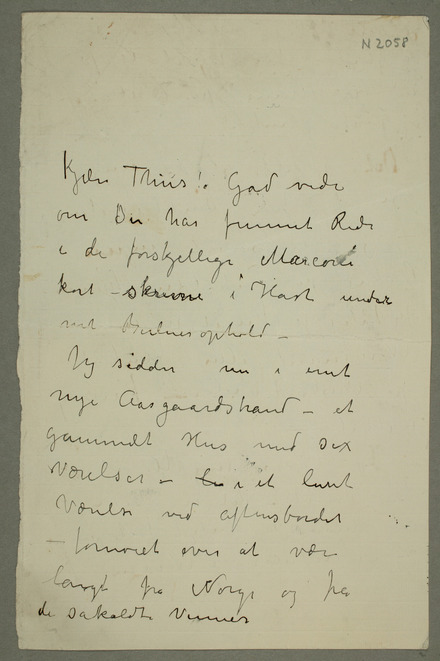 N 2058
Kjære Thiis! Gad vide
om Du har funnet Rede
i de forskjellige Marconi
kort – skrevne i Hast under
mit Berlinerophold –
Jeg sidder nu i mit
nye Aasgaardstrand – et
gammelt Hus med sex
Værelser – i et lunt
Værelse ved aftensbordet
– fornøiet over at være
langt fra Norge og fra
de såkaldte Venner